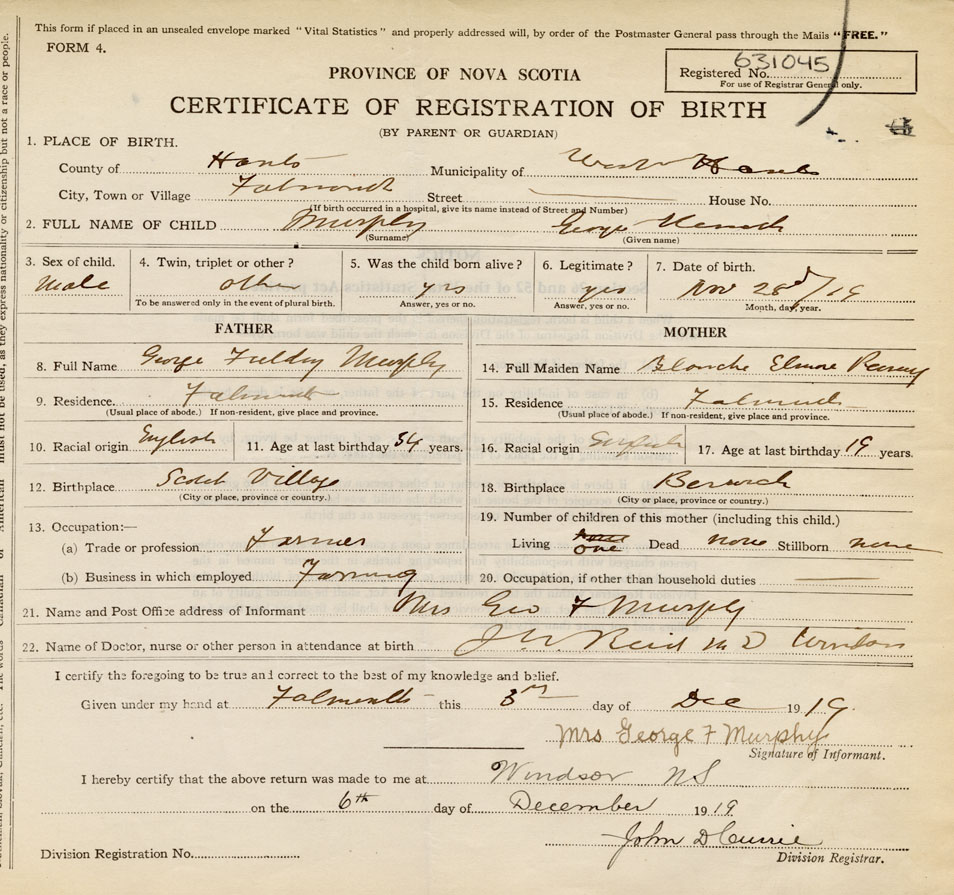 This form if placed in an unsealed envelope marked "Vital Statistics" and properly addressed will, by order of the Postmaster General pass through the Mails "FREE."
FORM 4.
631045
PROVINCE OF NOVA SCOTIA
Registered No.
For use of Registrar General only.
CERTIFICATE OF REGISTRATION OF BIRTH
(BY PARENT OR GUARDIAN)
1. PLACE OF BIRTH.
County of Hants Municipality of West Hants
City, Town or Village Falmouth Street House No.
(If birth occurred in a hospital, give its name instead of Street and Number)
2. FULL NAME OF CHILD Murphy George
(Surname) (Given name)
3. Sex of child. 4. Twin, triplet or other? 5. Was the child born alive? 6. Legitimate? 7. Date of birth.
Male other yes yes Nov 28 /19
To be answered only in the event of plural birth. Answer, yes or no. Answer, yes or no. Month, day, year.
FATHER MOTHER
8. Full Name George Murphy 14. Full Maiden Name Blanche
9. Residence. Falmouth 15. Residence Falmouth
(Usual place of abode.) If non-resident, give place and province. (Usual place of abode.) If non-resident, give place and province.
10. Racial origin English 11. Age at last birthday years. 16. Racial origin English 17. Age at last birthday 19 years.
12. Birthplace Scotch Village 18. Birthplace Berwick
(City or place, province or country.) (City or place, province or country.)
13. Occupation:— 19. Number of children of this mother (including this child.)
(a) Trade or profession Farmer Living One Dead none Stillborn none
(b) Business in which employed Farming 20. Occupation, if other than household duties
21. Name and Post Office address of Informant Mrs Geo F Murphy
22. Name of Doctor, nurse or other person in attendance at birth J. W. Reid M D Windsor
I certify the foregoing to be true and correct to the best of my knowledge and belief.
Given under my hand at Falmouth this 3rd day of Dec 1919
Mrs George F Murphy
Signature of Informant.
I hereby certify that the above return was made to me at Windsor NS
on the 6th day of December 1919
John D Currie
Division Registration No. Division Registrar.